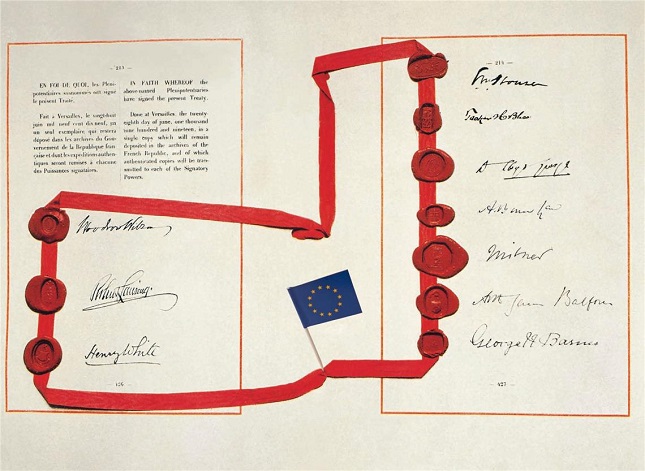 EN FOI DE QUOI, les Pléni-
potentiaires susnommés ont signé
le présent Traité.
Fait à Versailles, le vingt-huit
juin mil neuf cent dix-neuf, en
un seul exemplaire qui restera
déposé dans les archives du Gou-
vernement de la République fran-
çaise et dont les expéditions authen-
tiques seront remises à chacune
des Puissances signataires.
IN FAITH WHEREOF the
above-named Plenipotentiaries
have signed the present Treaty.
Done at Versailles, the twenty
eighth day of june, one thousand
nine hundred and nineteen, in a
single copy which will remain
deposited in the archives of the
French Republic, and of which
authenticated copies will be trans-
mitted to each of the Signatory
Powers.
Woodrow Wilson
Robert Lansing.
Henry White
— 426 —
— 214 —
House
Tasker H Bliss
D Lloyd George
A. Bonar Law
Milner
Arthur James Balfour
George N Barnes
— 427 —